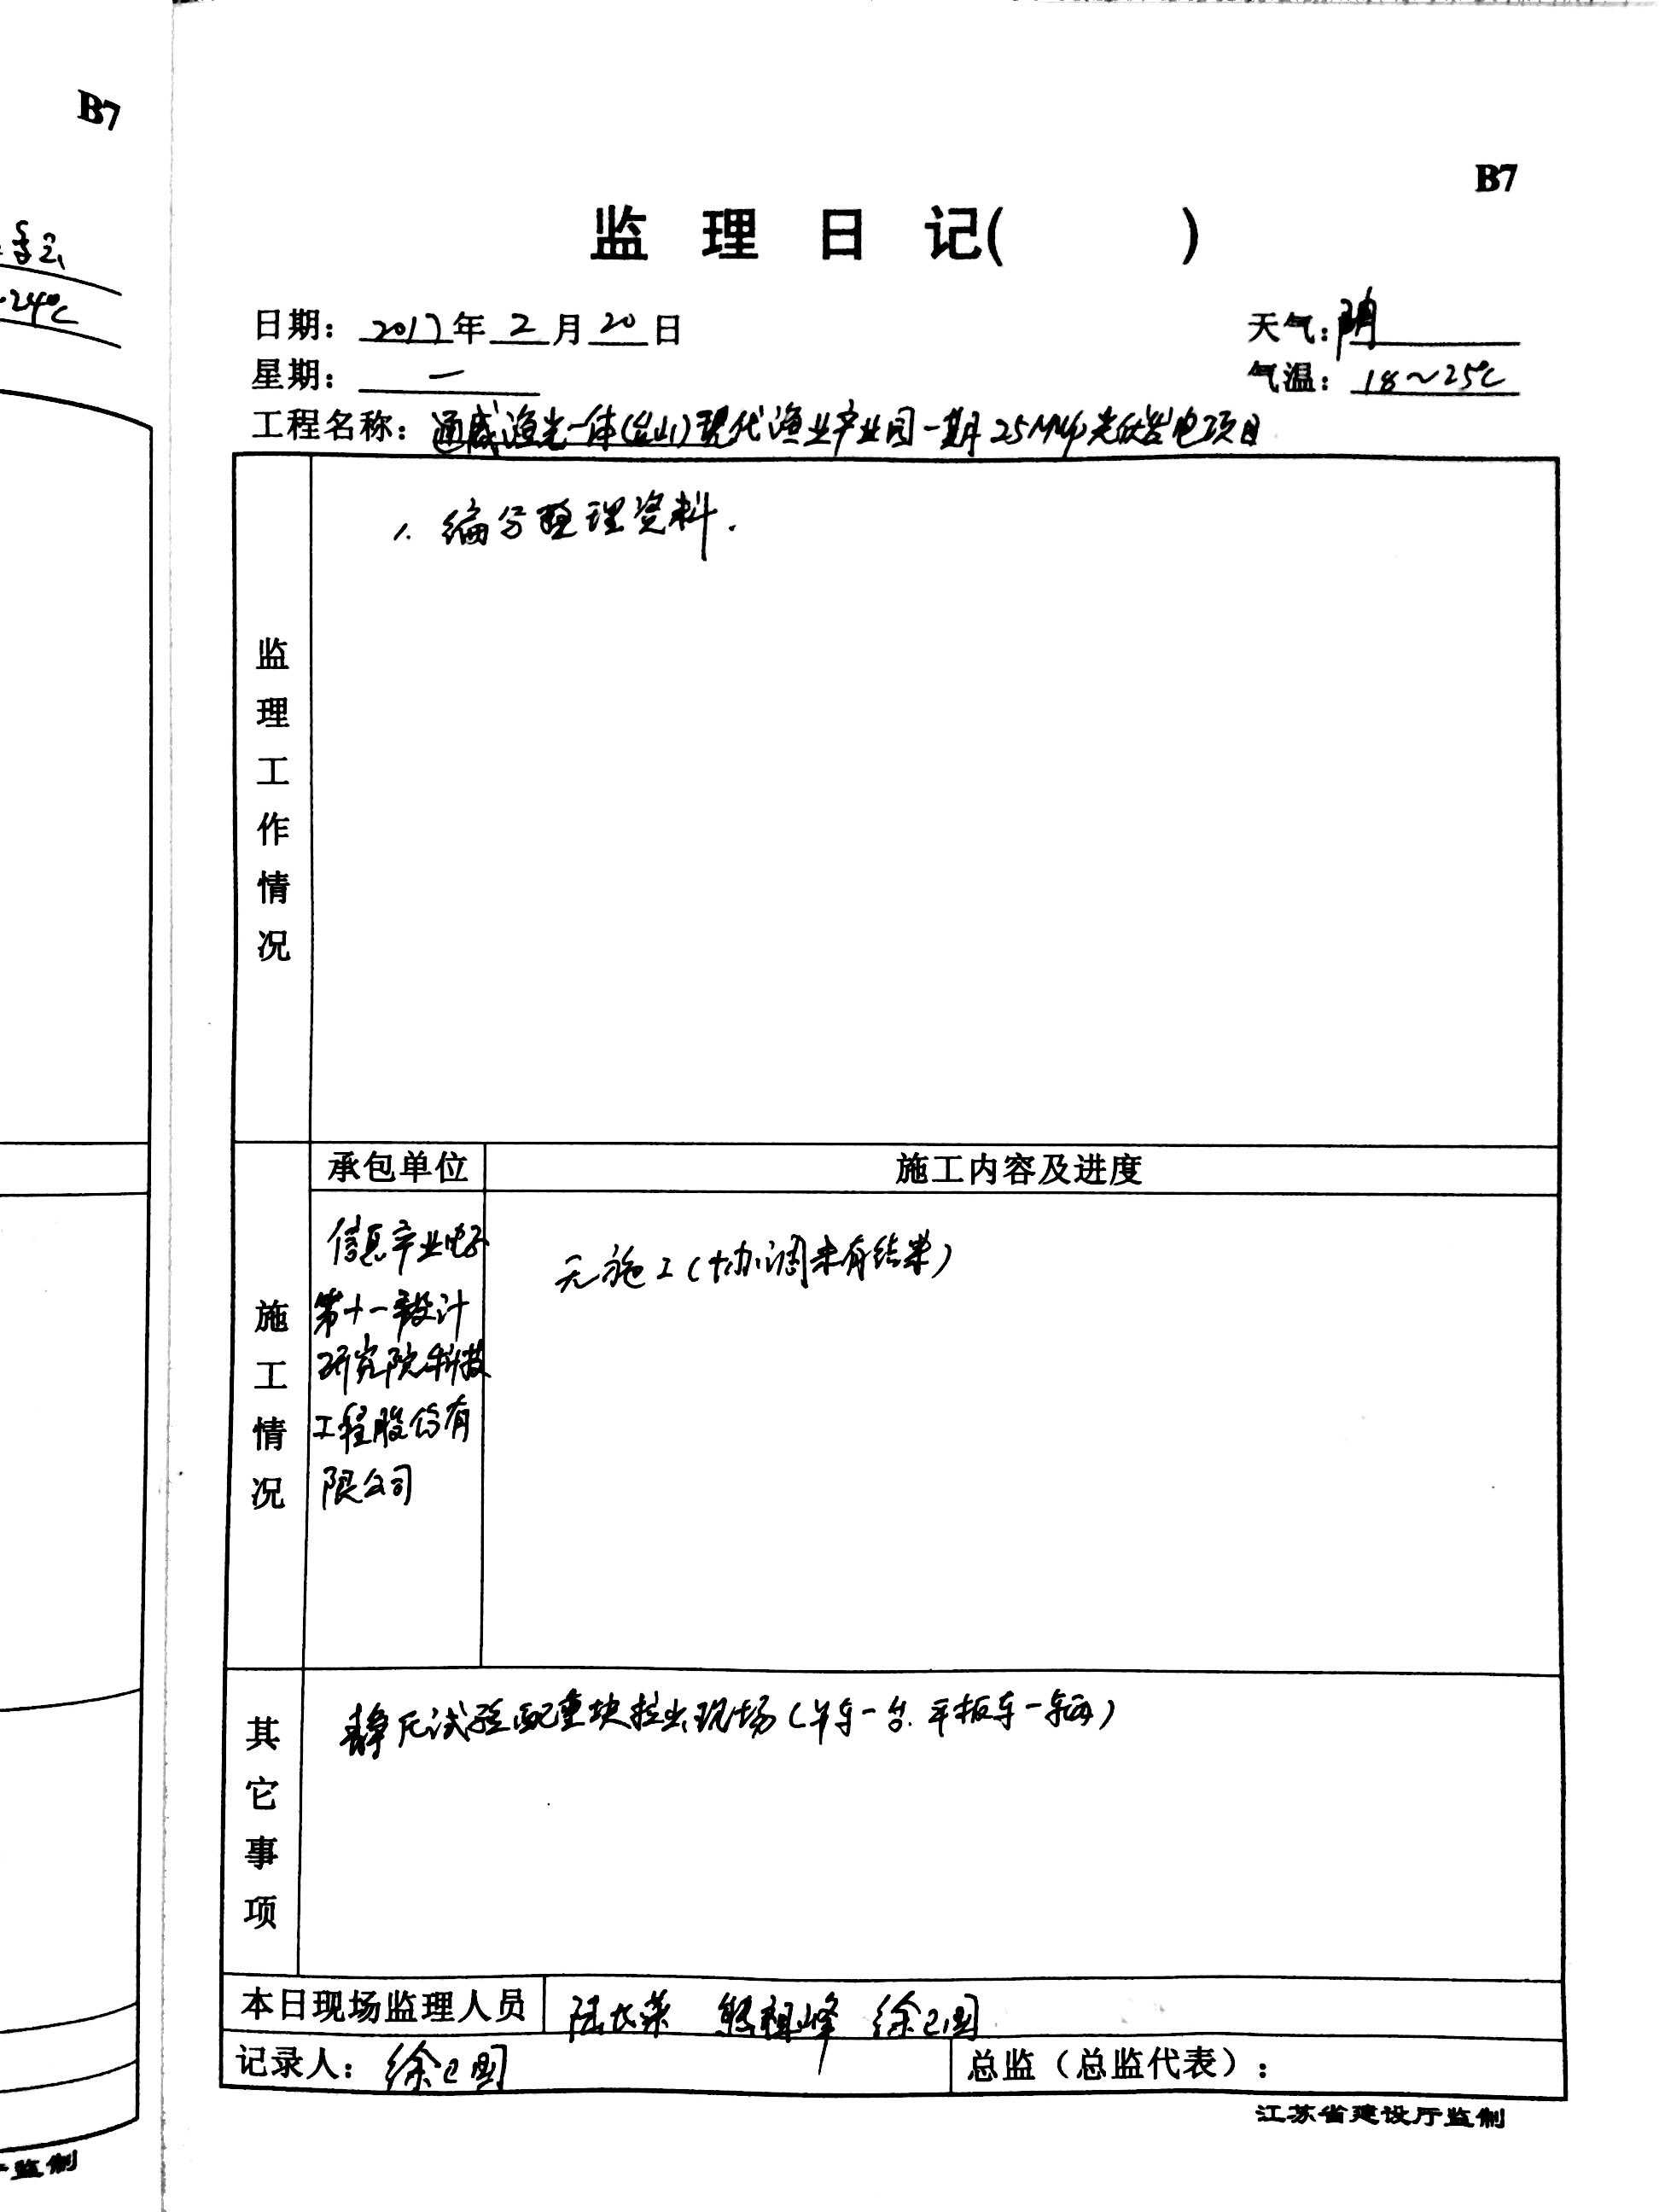 B7
24℃
监制
B7
监理日记( )
日期：2017年2月20日 天气：阴
星期：一 气温：18～25℃
工程名称：通威渔光一体(台山)现代渔业产业园一期25MWp光伏发电项目
监理工作情况
1. 编写整理资料.
承包单位 施工内容及进度
施工情况
信息产业电子
第十一设计
研究院科技
工程股份有
限公司
无施工(协调未有结果)
其它事项
静压试验配重块拉出现场(吊车一台.平板车一辆)
本日现场监理人员 陆长荣 熊祖峰 徐卫国
记录人：徐卫国 总监（总监代表）：
江苏省建设厅监制